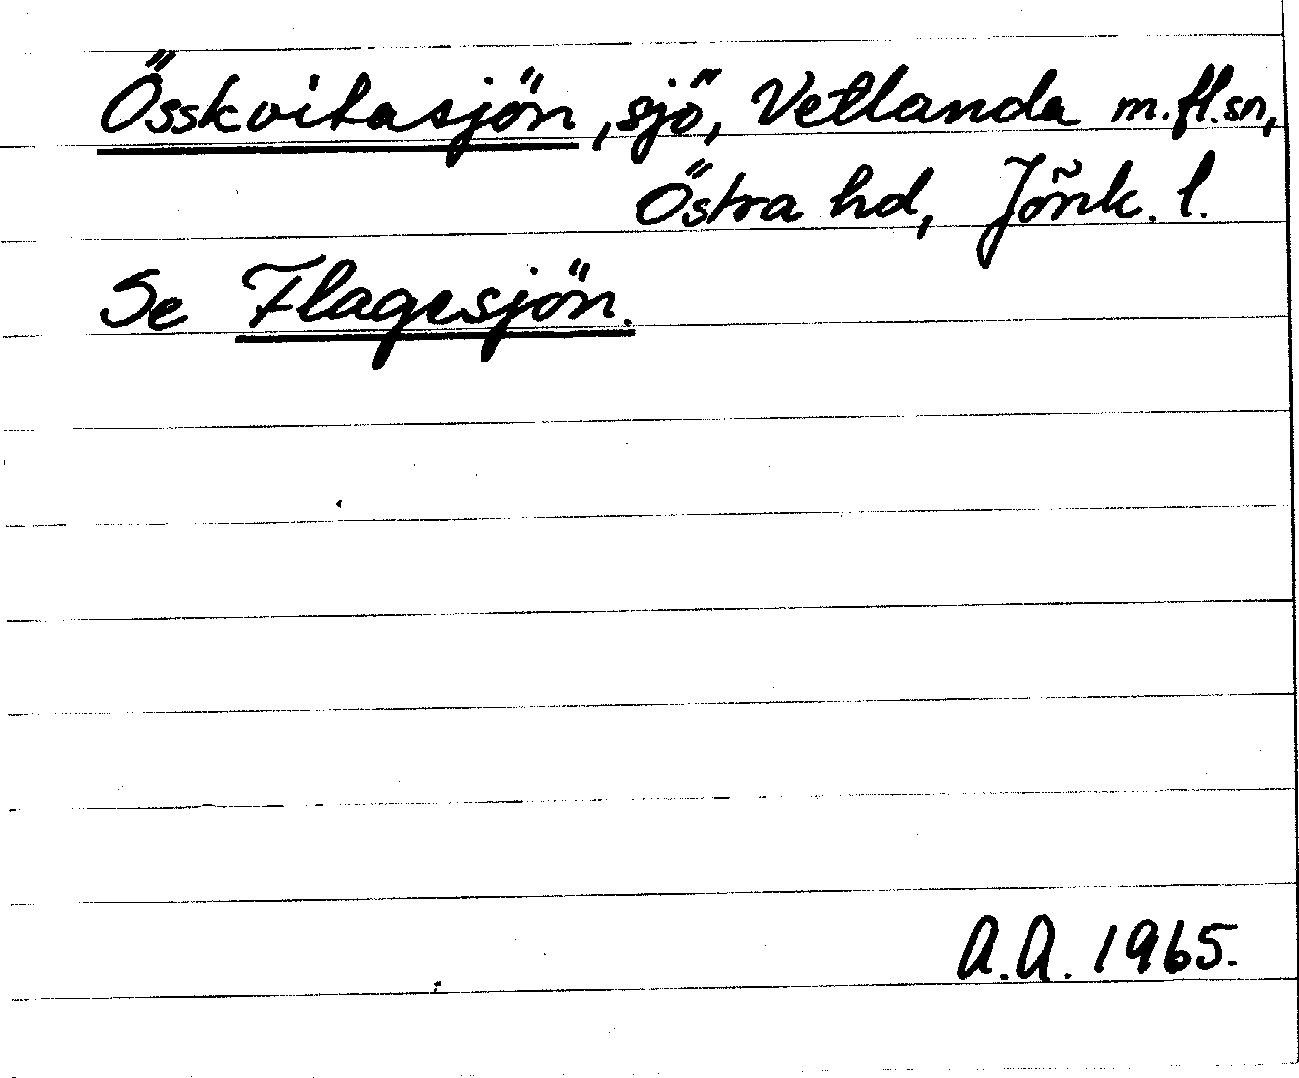 Össkvitasjön, sjö, Vetlanda m.fl.sn,
Östra hd, Jönk. l.
Se Flagesjön.
A.A. 1965.